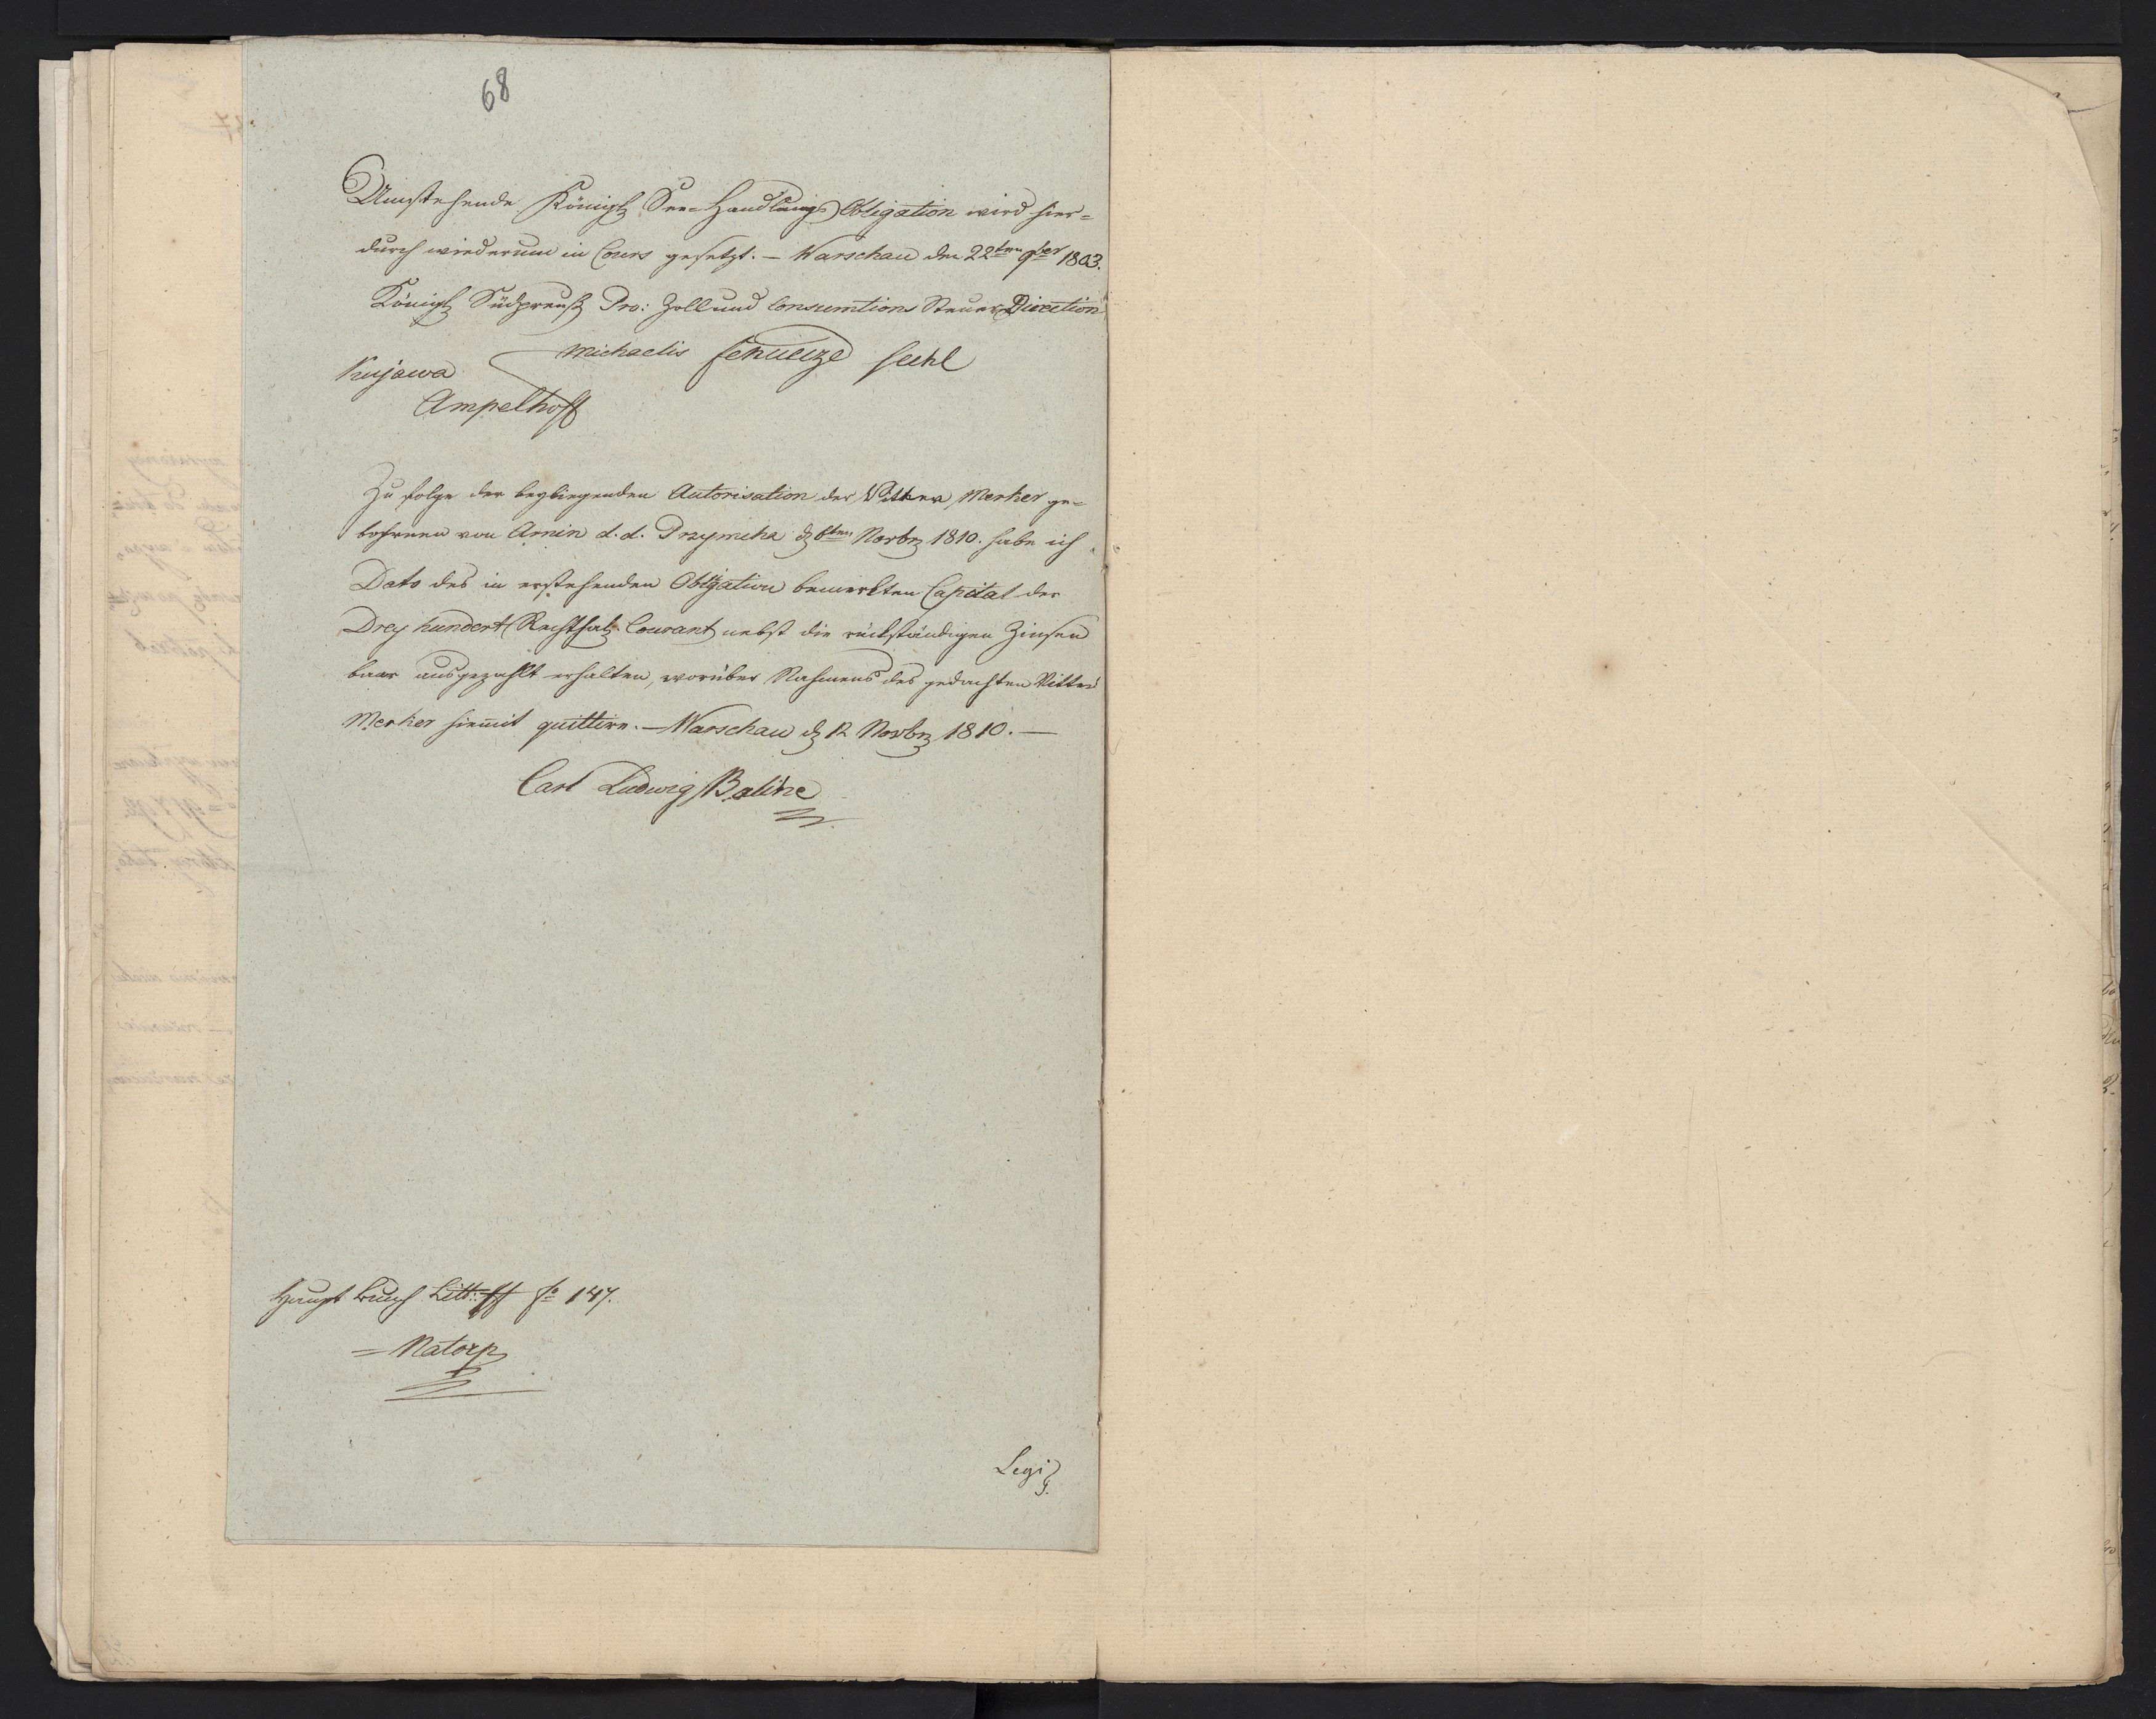 68
Umstehende Königl See-Handlungs Obligation wird hier=
durch wiederum in Cours gesetzt. – Warschau den 22ten 9ber 1803.
Königl Südpreuß Pro: Zoll und Consumtions Steuer Direction
Michaelis Schulze
Kujawa
Ampelhoff
Zu folge der beyliegenden Autorisation der Merker ge=
bohrnen von Arnin d. d. 6ten Novbr 1810. habe ich
Dato das in Obligation bemerkten Capital der
Drey hundert Reichsthal Courant nebst die rückständigen Zinsen
baar ausgezahlt erhalten, worüber Nahmens des gedachten
Merker hiemit quittire. – Warschau d 12 Novbr 1810. –
Carl Ludwig
Haupt Buch Litt: fo 147.
Natorp
Legi